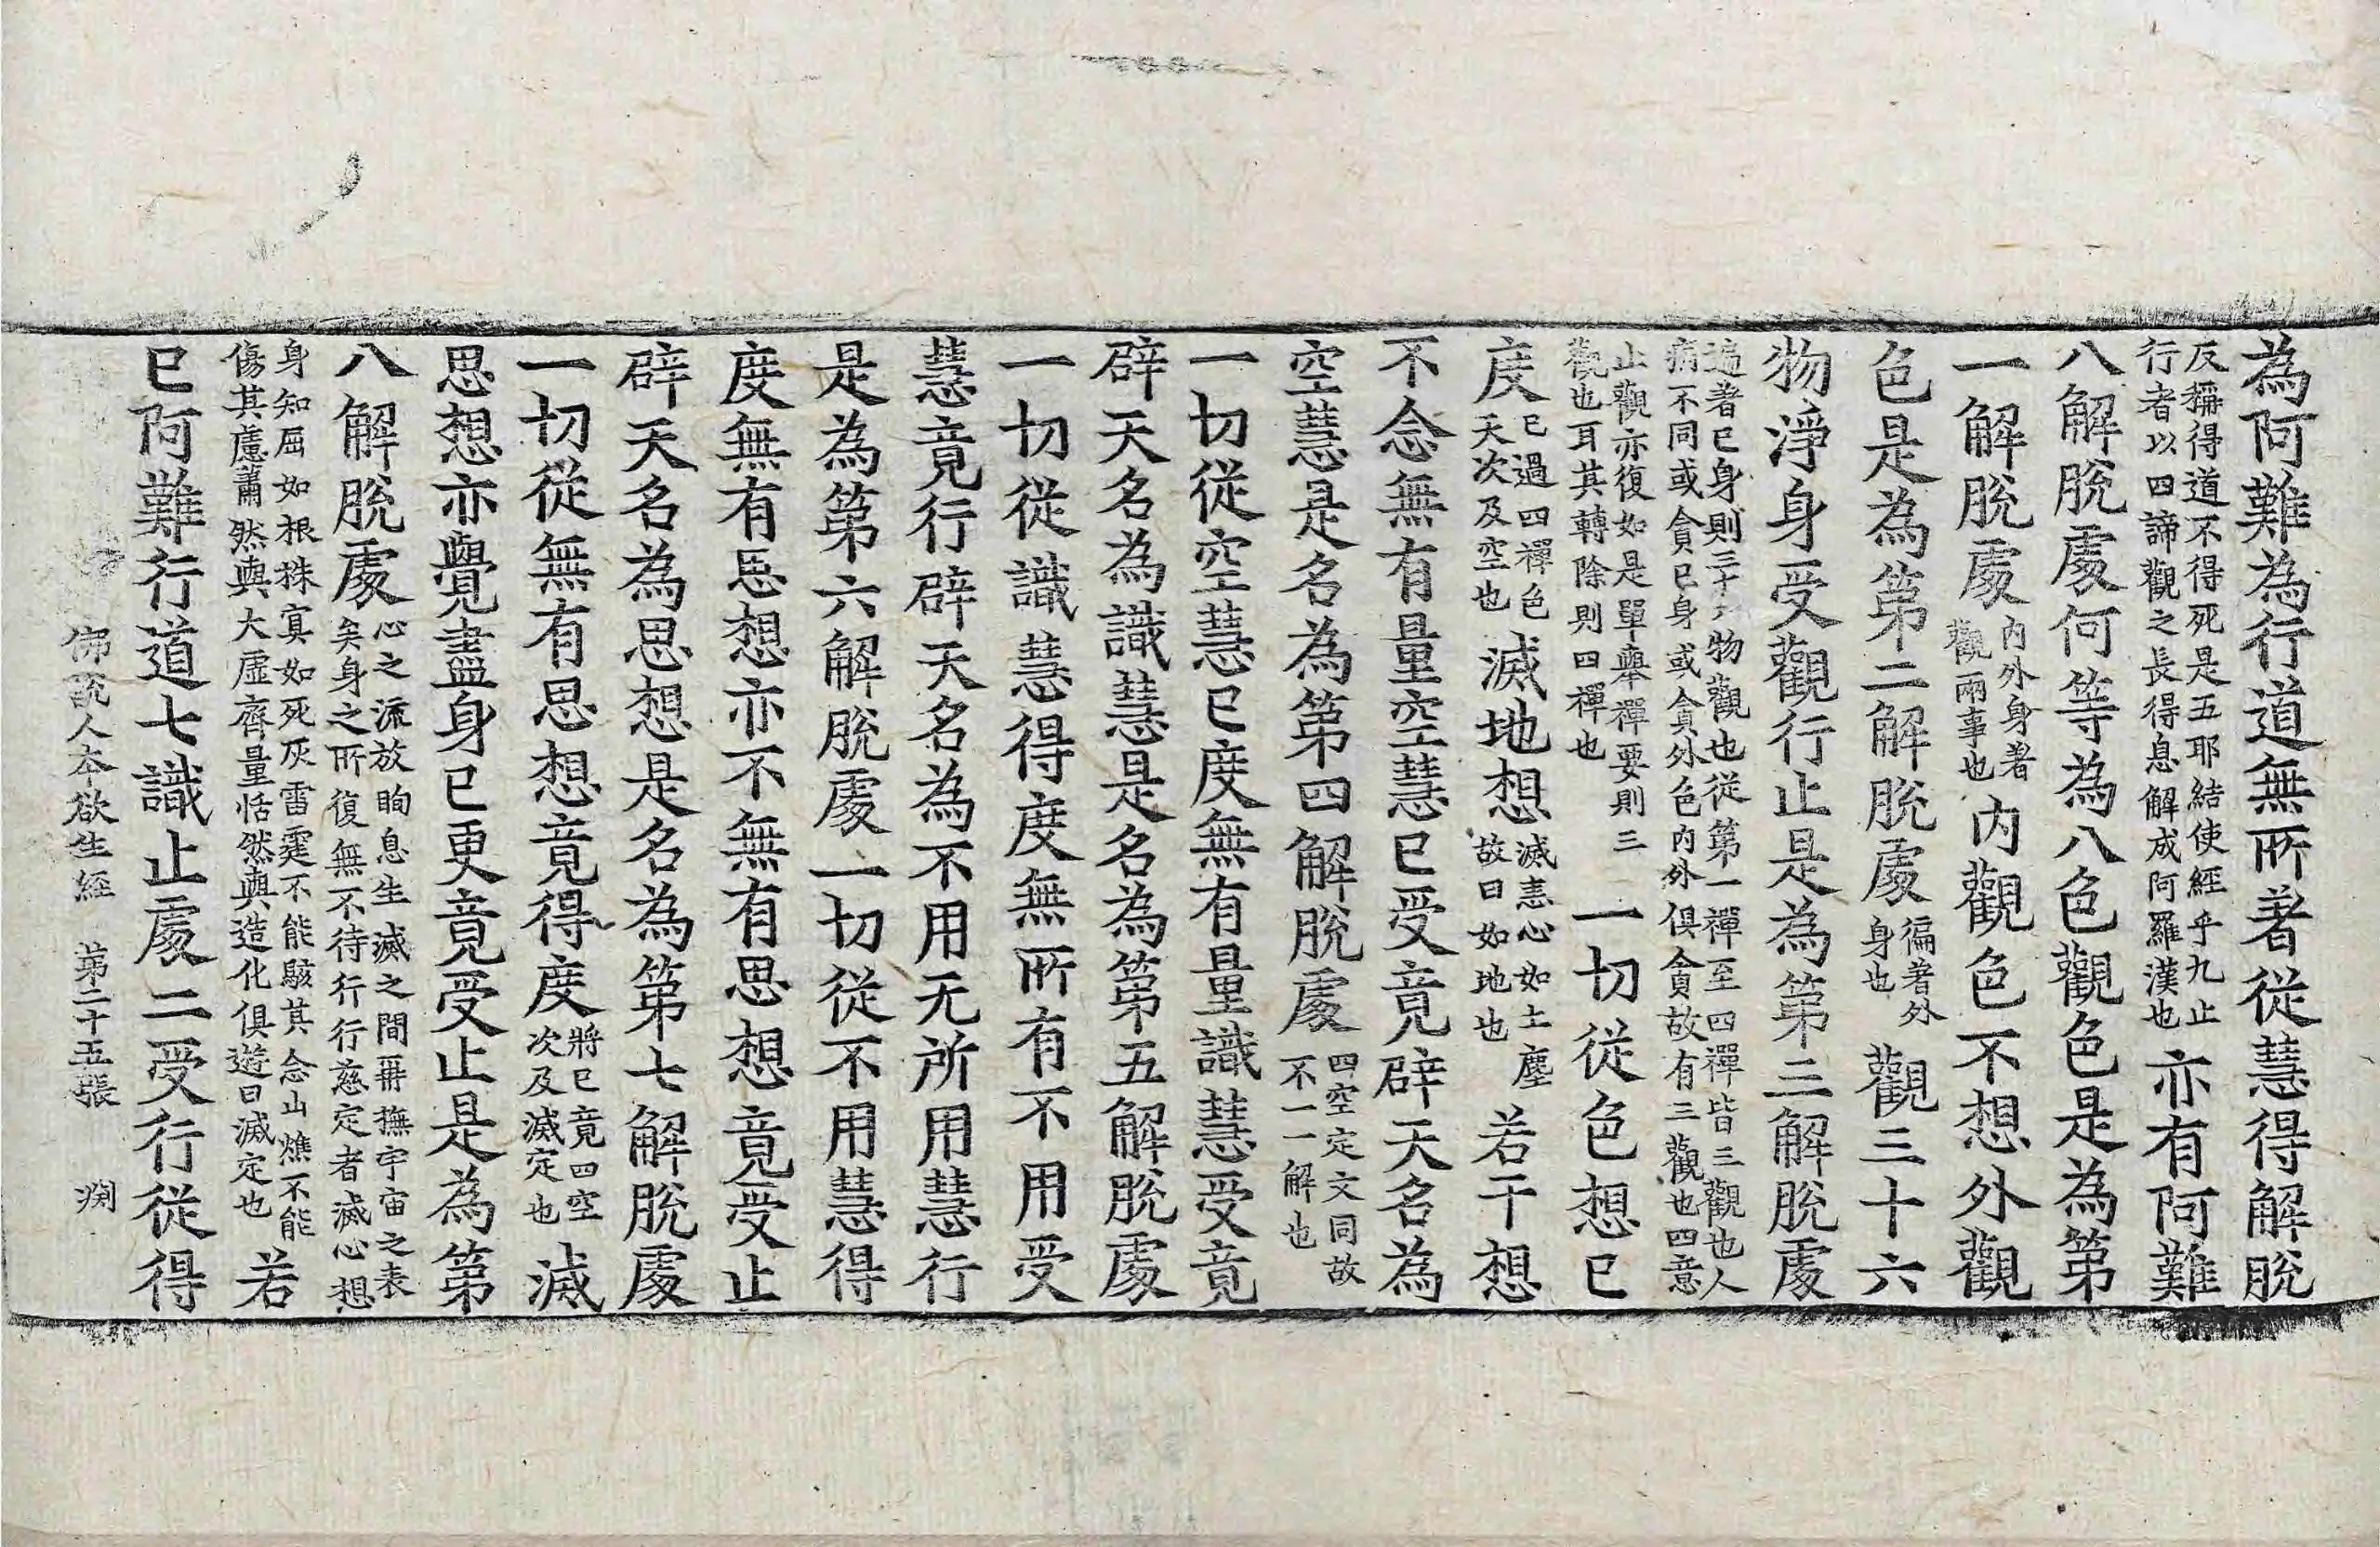 為阿難為行道無所著從慧得解脫
反稱得道不得死是五耶結使經乎九止
行者以四諦觀之長得息解成阿羅漢也
亦有阿難
八解脫處何等為八色觀色是為第
一解脫處
內外身著
觀兩事也
內觀色不想外觀
色是為第二解脫處
徧著外
身也
觀三十六
物淨身受觀行止是為第三解脫處
追著已身則三十六物觀也從第一禪至四禪皆三觀也人
病不同或貪已身或貪外色內外俱貪故有三觀也四意
止觀亦復如是單舉禪要則三
觀也耳其轉除則四禪也
一切從色想已
度
已過四禪色
天次及空也
滅地想
滅恚心如土塵
故曰如地也
若干想
不念無有量空慧已受竟辟天名為
空慧是名為第四解脫處
四空定文同故
不一一解也
一切從空慧已度無有量識慧受竟
辟天名為識慧是名為第五解脫處
一切從識慧得度無所有不用受
慧竟行辟天名為不用无所用慧行
是為第六解脫處一切從不用慧得
度無有思想亦不無有思想竟受止
辟天名為思想是名為第七解脫處
一切從無有思想竟得度
將已竟四空
次及滅定也
滅
思想亦覺盡身已更竟受止是為第
八解脫處
心之流放眴息生滅之間再撫宇宙之表
矣身之所復無不待行行慈定者滅心想
身知屈如根株冥如死灰雷霆不能駭其念山燋不能
傷其慮蕭然與大虛齊量恬然與造化俱遊曰滅定也
若
已阿難行道七識止處二受行從得
佛說人本欲生經　第二十五張　渕